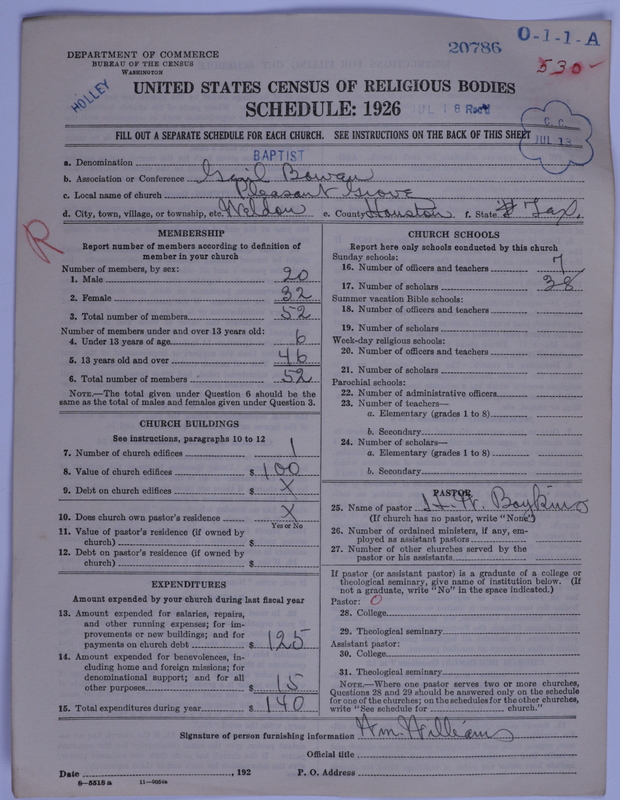 20786
O-1-1-A
530
DEPARTMENT OF COMMERCE
BUREAU OF THE CENSUS
WASHINGTON
HOLLEY
UNITED STATES CENSUS OF RELIGIOUS BODIES
SCHEDULE: 1926
JUL 18 Rec'd
C. C.
JUL 18
FILL OUT A SEPARATE SCHEDULE FOR EACH CHURCH. SEE INSTRUCTIONS ON THE BACK OF THIS SHEET
a. Denomination BAPTIST
b. Association or Conference Bowen
c. Local name of church Pleasant Grove
d. City, town, village, or township, etc. Weldon e. County Houston f. State Tax.
R
MEMBERSHIP
Report number of members according to definition of
member in your church
Number of members, by sex:
1. Male 20
2. Female 32
3. Total number of members 52
Number of members under and over 13 years old:
4. Under 13 years of age 6
5. 13 years old and over 46
6. Total number of members 52
NOTE.—The total given under Question 6 should be the
same as the total of males and females given under Question 3.
CHURCH BUILDINGS
See instructions, paragraphs 10 to 12
7. Number of church edifices 1
8. Value of church edifices $ 100
9. Debt on church edifices $ X
10. Does church own pastor's residence X
Yes or No
11. Value of pastor's residence (if owned by
church) $
12. Debt on pastor's residence (if owned by
church) $
EXPENDITURES
Amount expended by your church during last fiscal year
13. Amount expended for salaries, repairs,
and other running expenses; for im-
provements or new buildings; and for
payments on church debt $ 125
14. Amount expended for benevolences, in-
cluding home and foreign missions; for
denominational support; and for all
other purposes $ 15
15. Total expenditures during year $ 140
CHURCH SCHOOLS
Report here only schools conducted by this church
Sunday schools:
16. Number of officers and teachers 7
17. Number of scholars 38
Summer vacation Bible schools:
18. Number of officers and teachers
19. Number of scholars
Week-day religious schools:
20. Number of officers and teachers
21. Number of scholars
Parochial schools:
22. Number of administrative officers
23. Number of teachers—
a. Elementary (grades 1 to 8)
b. Secondary
24. Number of scholars—
a. Elementary (grades 1 to 8)
b. Secondary
PASTOR
25. Name of pastor H. W. Boykins
(If church has no pastor, write "None")
26. Number of ordained ministers, if any, em-
ployed as assistant pastors
27. Number of other churches served by the
pastor or his assistants
If pastor (or assistant pastor) is a graduate of a college or
theological seminary, give name of institution below. (If
not a graduate, write "No" in the space indicated.)
Pastor: O
28. College
29. Theological seminary
Assistant pastor:
30. College
31. Theological seminary
NOTE.—Where one pastor serves two or more churches,
Questions 28 and 29 should be answered only on the schedule
for one of the churches; on the schedules for the other churches,
write "See schedule for church."
Signature of person furnishing information Wm. Williams
Official title
Date , 192 P. O. Address
8—5518 a 11—9054a